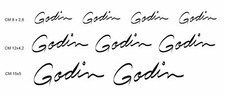 CM 8 x 2,8 Godin Godin Godin Godin
CM 12x4,2 Godin Godin Godin
CM 15x5 Godin Godin